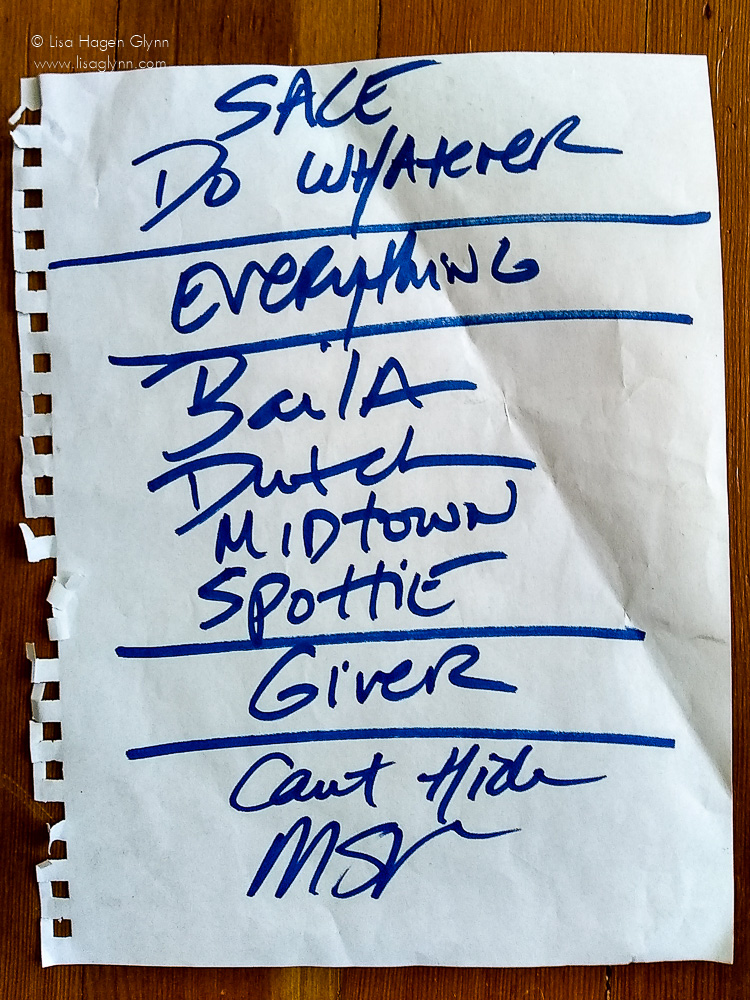 © Lisa Hagen Glynn
www.lisaglynn.com
SALE
DO WHATEVER
EVERYTHING
BailA
Dutch
MIDTOWN
SpottiE
GiveR
Cant Hide